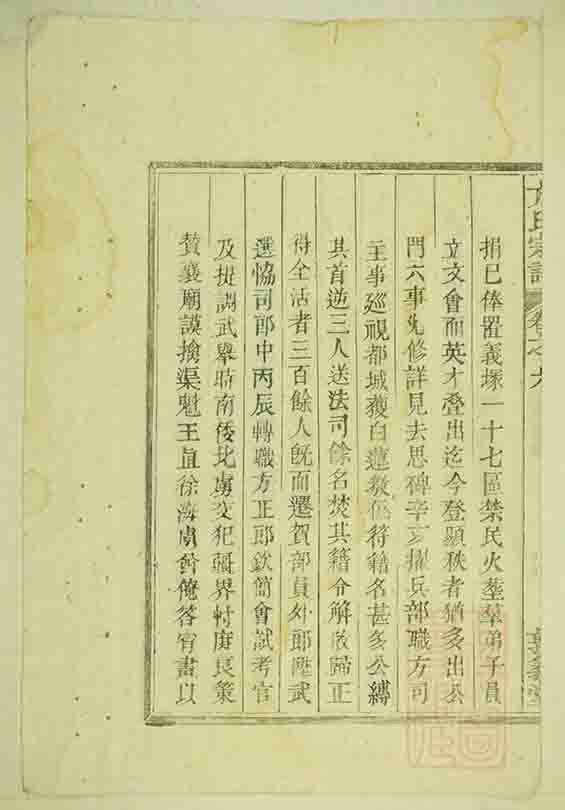 氏宗譜 卷之六
捐巳俸置義塚一十七區禁民火塟羣弟子員
立文會而英才叠出迄今登顯秩者猶多出公
門六事允修詳見去思碑辛亥擢兵部職方司
主事廵視都城獲白蓮教僞符籍名甚多公縛
其首逆三人送法司餘名焚其籍令解散歸正
得全活者三百餘人旣而遷賀部員外郎陞武
選恊司郎中丙辰轉職方正郎欽簡會試考官
及提調武舉時南倭北虜交犯疆界
贊襄廟謨擒渠魁王直徐海虜酋俺荅宵晝以